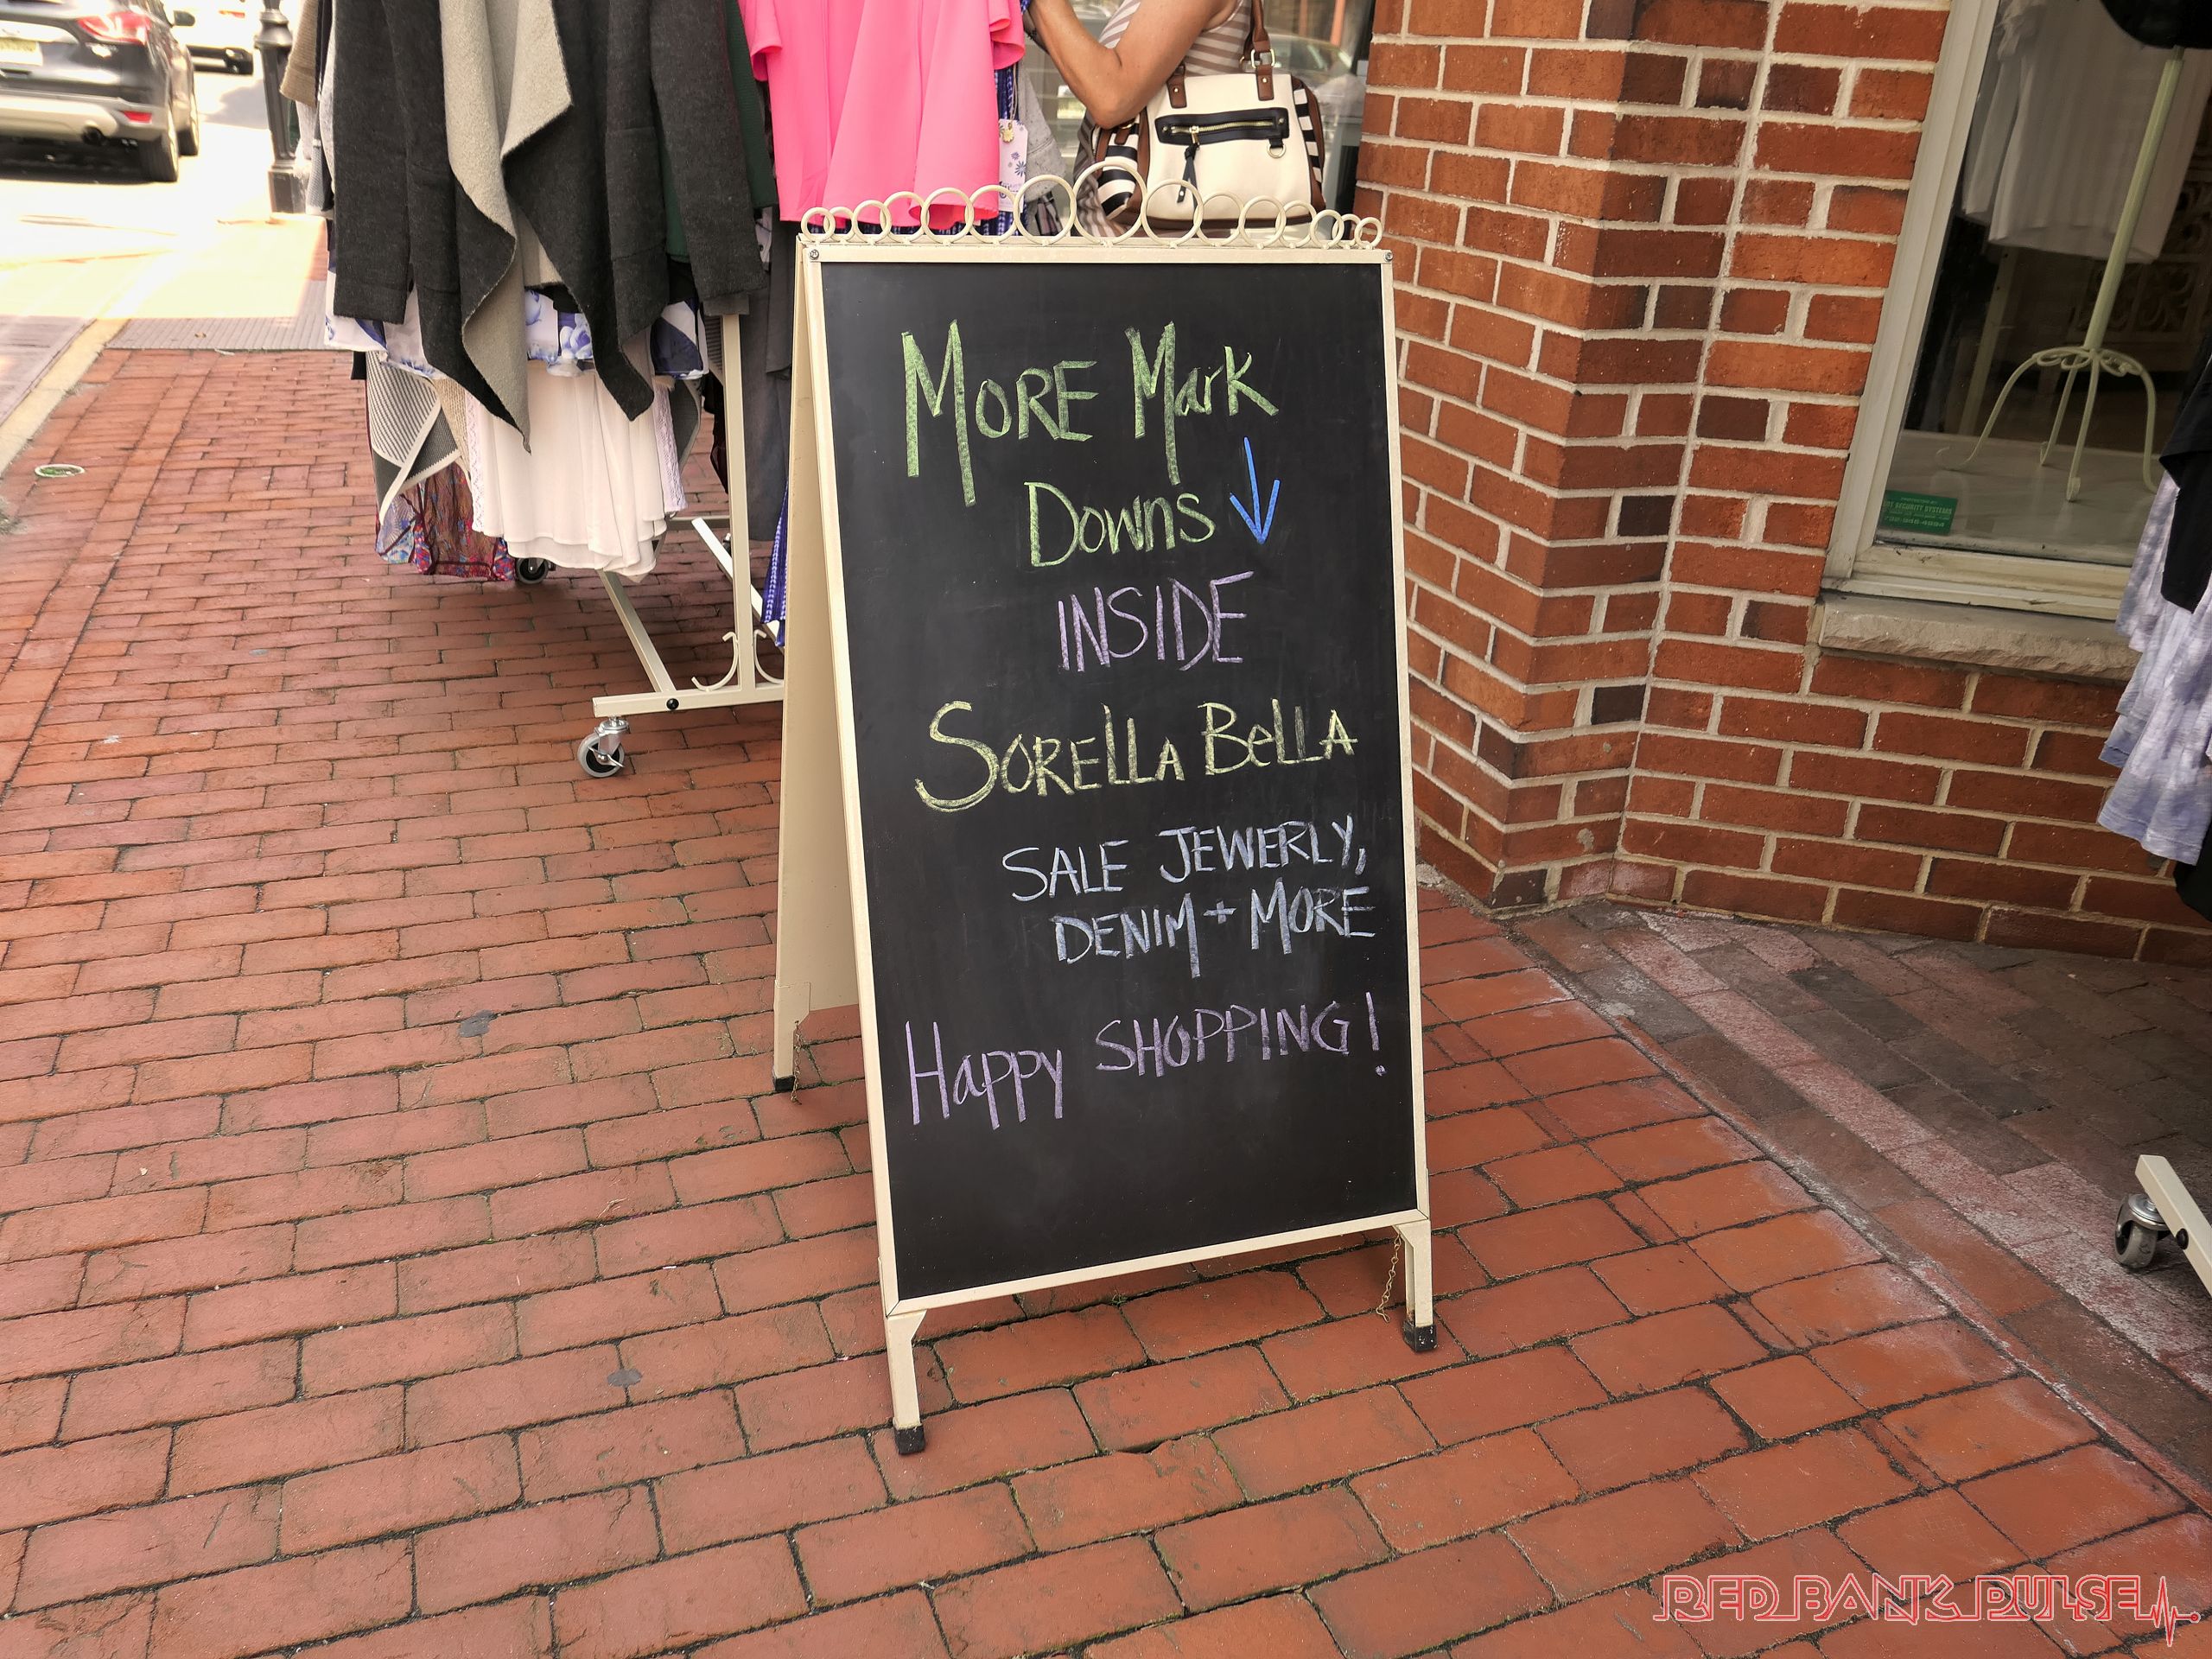 More Mark
Downs ↓
INSIDE
SORELLA BELLA
SALE JEWERLY,
DENIM + MORE
Happy SHOPPING!
RED BANK PULSE